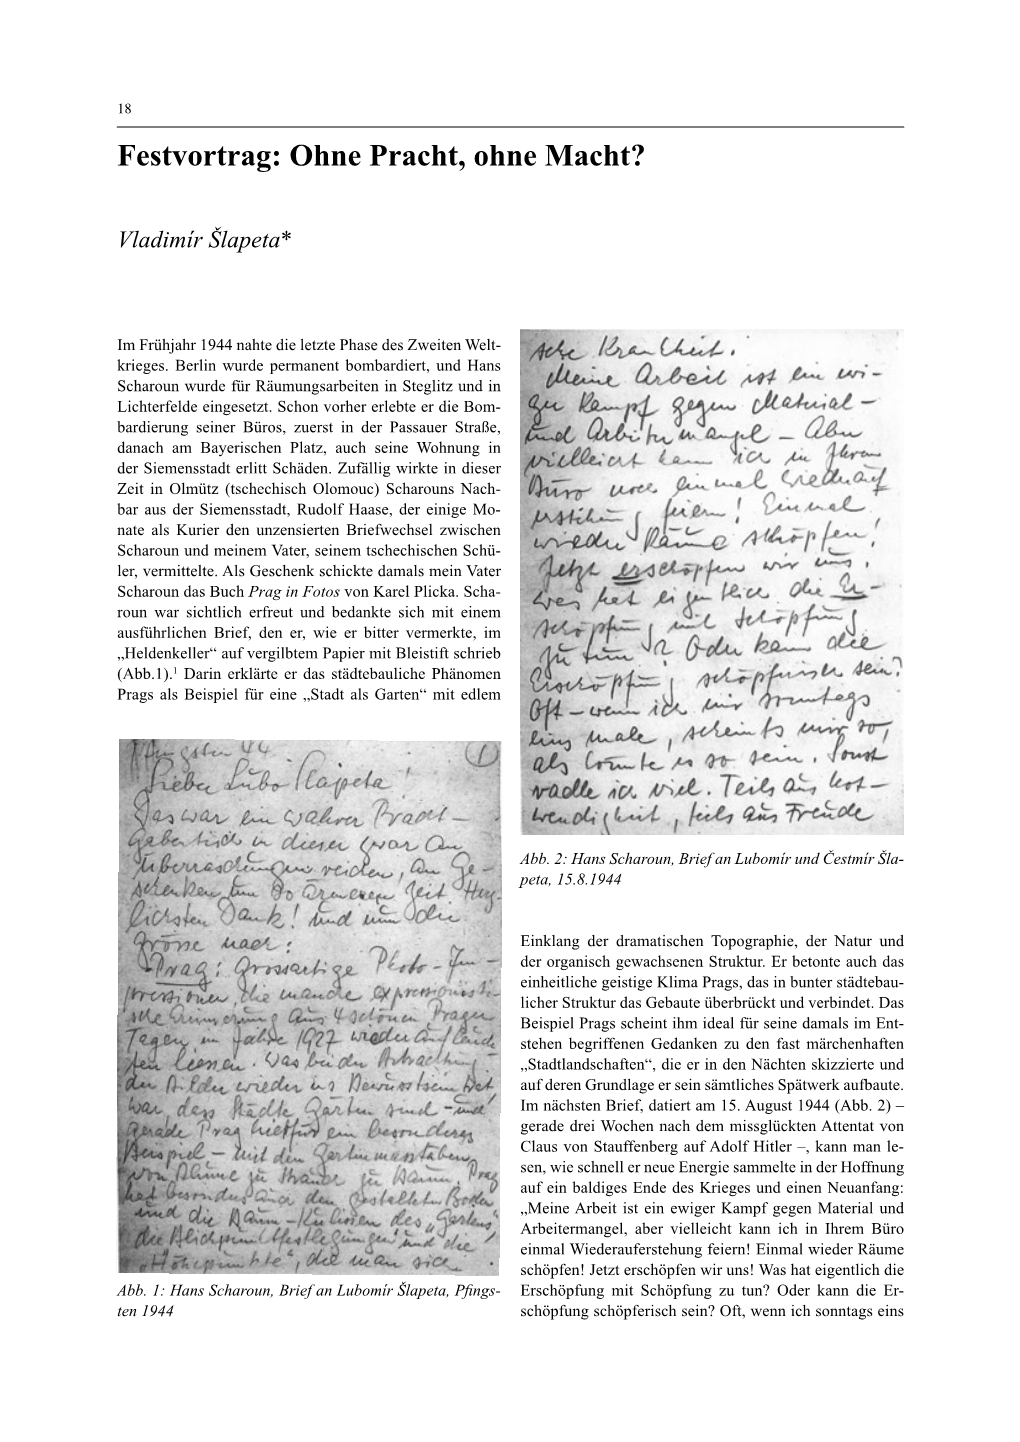 18
Festvortrag: Ohne Pracht, ohne Macht?
Vladimír Šlapeta*
Im Frühjahr 1944 nahte die letzte Phase des Zweiten Welt-
krieges. Berlin wurde permanent bombardiert, und Hans
Scharoun wurde für Räumungsarbeiten in Steglitz und in
Lichterfelde eingesetzt. Schon vorher erlebte er die Bom-
bardierung seiner Büros, zuerst in der Passauer Straße,
danach am Bayerischen Platz, auch seine Wohnung in
der Siemensstadt erlitt Schäden. Zufällig wirkte in dieser
Zeit in Olmütz (tschechisch Olomouc) Scharouns Nach-
bar aus der Siemensstadt, Rudolf Haase, der einige Mo-
nate als Kurier den unzensierten Briefwechsel zwischen
Scharoun und meinem Vater, seinem tschechischen Schü-
ler, vermittelte. Als Geschenk schickte damals mein Vater
Scharoun das Buch Prag in Fotos von Karel Plicka. Scha-
roun war sichtlich erfreut und bedankte sich mit einem
ausführlichen Brief, den er, wie er bitter vermerkte, im
„Heldenkeller“ auf vergilbtem Papier mit Bleistift schrieb
(Abb.1).¹ Darin erklärte er das städtebauliche Phänomen
Prags als Beispiel für eine „Stadt als Garten“ mit edlem
Pfingsten 44. 1
Lieber Lubo Slapeta!
Das war ein wahrer Pracht-
Gabentisch in dieser zwar an
Überraschungen reichen, an Ge-
schenken um so ärmeren Zeit. Herz-
lichsten Dank! und nun die
Grösse naer:
Prag: Grossartige Photo-Im-
pressionen, die manche expressionisti-
sche Erinnerung aus 4 schönen Prager
Tagen im Jahre 1927 wieder aufleuch-
ten liessen. Was bei der Betrachtung
der Bilder wieder ins Bewusstsein trat
war, dass Städte Gärten sind - und
gerade Prag hierfür ein besonderes
Beispiel - mit den Gartenmasstäben
von Blume zu Strauch zu Baum. Prag
hat besonders auch den gestalteten Boden
und die Baum-Kulissen des „Gartens“,
die Blickpunktfestlegungen und die
„Höhepunkte“, die man sich
Abb. 1: Hans Scharoun, Brief an Lubomír Šlapeta, Pfings-
ten 1944
sche Krankheit.
Meine Arbeit ist ein ewi-
ger Kampf gegen Material-
und Arbeitermangel - Aber
vielleicht kann ich in Ihrem
Büro noch einmal Wiederauf
erstehung feiern! Einmal
wieder Räume schöpfen!
Jetzt erschöpfen wir uns.
Was hat eigentlich die Er-
schöpfung mit Schöpfung
zu tun? Oder kann die
Erschöpfung schöpferisch sein?
Oft - wenn ich mir sonntags
eins male, scheints mir so,
als könnte es so sein. Sonst
radle ich viel. Teils aus Not-
wendigkeit, teils aus Freude
Abb. 2: Hans Scharoun, Brief an Lubomír und Čestmír Šla-
peta, 15.8.1944
Einklang der dramatischen Topographie, der Natur und
der organisch gewachsenen Struktur. Er betonte auch das
einheitliche geistige Klima Prags, das in bunter städtebau-
licher Struktur das Gebaute überbrückt und verbindet. Das
Beispiel Prags scheint ihm ideal für seine damals im Ent-
stehen begriffenen Gedanken zu den fast märchenhaften
„Stadtlandschaften“, die er in den Nächten skizzierte und
auf deren Grundlage er sein sämtliches Spätwerk aufbaute.
Im nächsten Brief, datiert am 15. August 1944 (Abb. 2) –
gerade drei Wochen nach dem missglückten Attentat von
Claus von Stauffenberg auf Adolf Hitler –, kann man le-
sen, wie schnell er neue Energie sammelte in der Hoffnung
auf ein baldiges Ende des Krieges und einen Neuanfang:
„Meine Arbeit ist ein ewiger Kampf gegen Material und
Arbeitermangel, aber vielleicht kann ich in Ihrem Büro
einmal Wiederauferstehung feiern! Einmal wieder Räume
schöpfen! Jetzt erschöpfen wir uns! Was hat eigentlich die
Erschöpfung mit Schöpfung zu tun? Oder kann die Er-
schöpfung schöpferisch sein? Oft, wenn ich sonntags eins